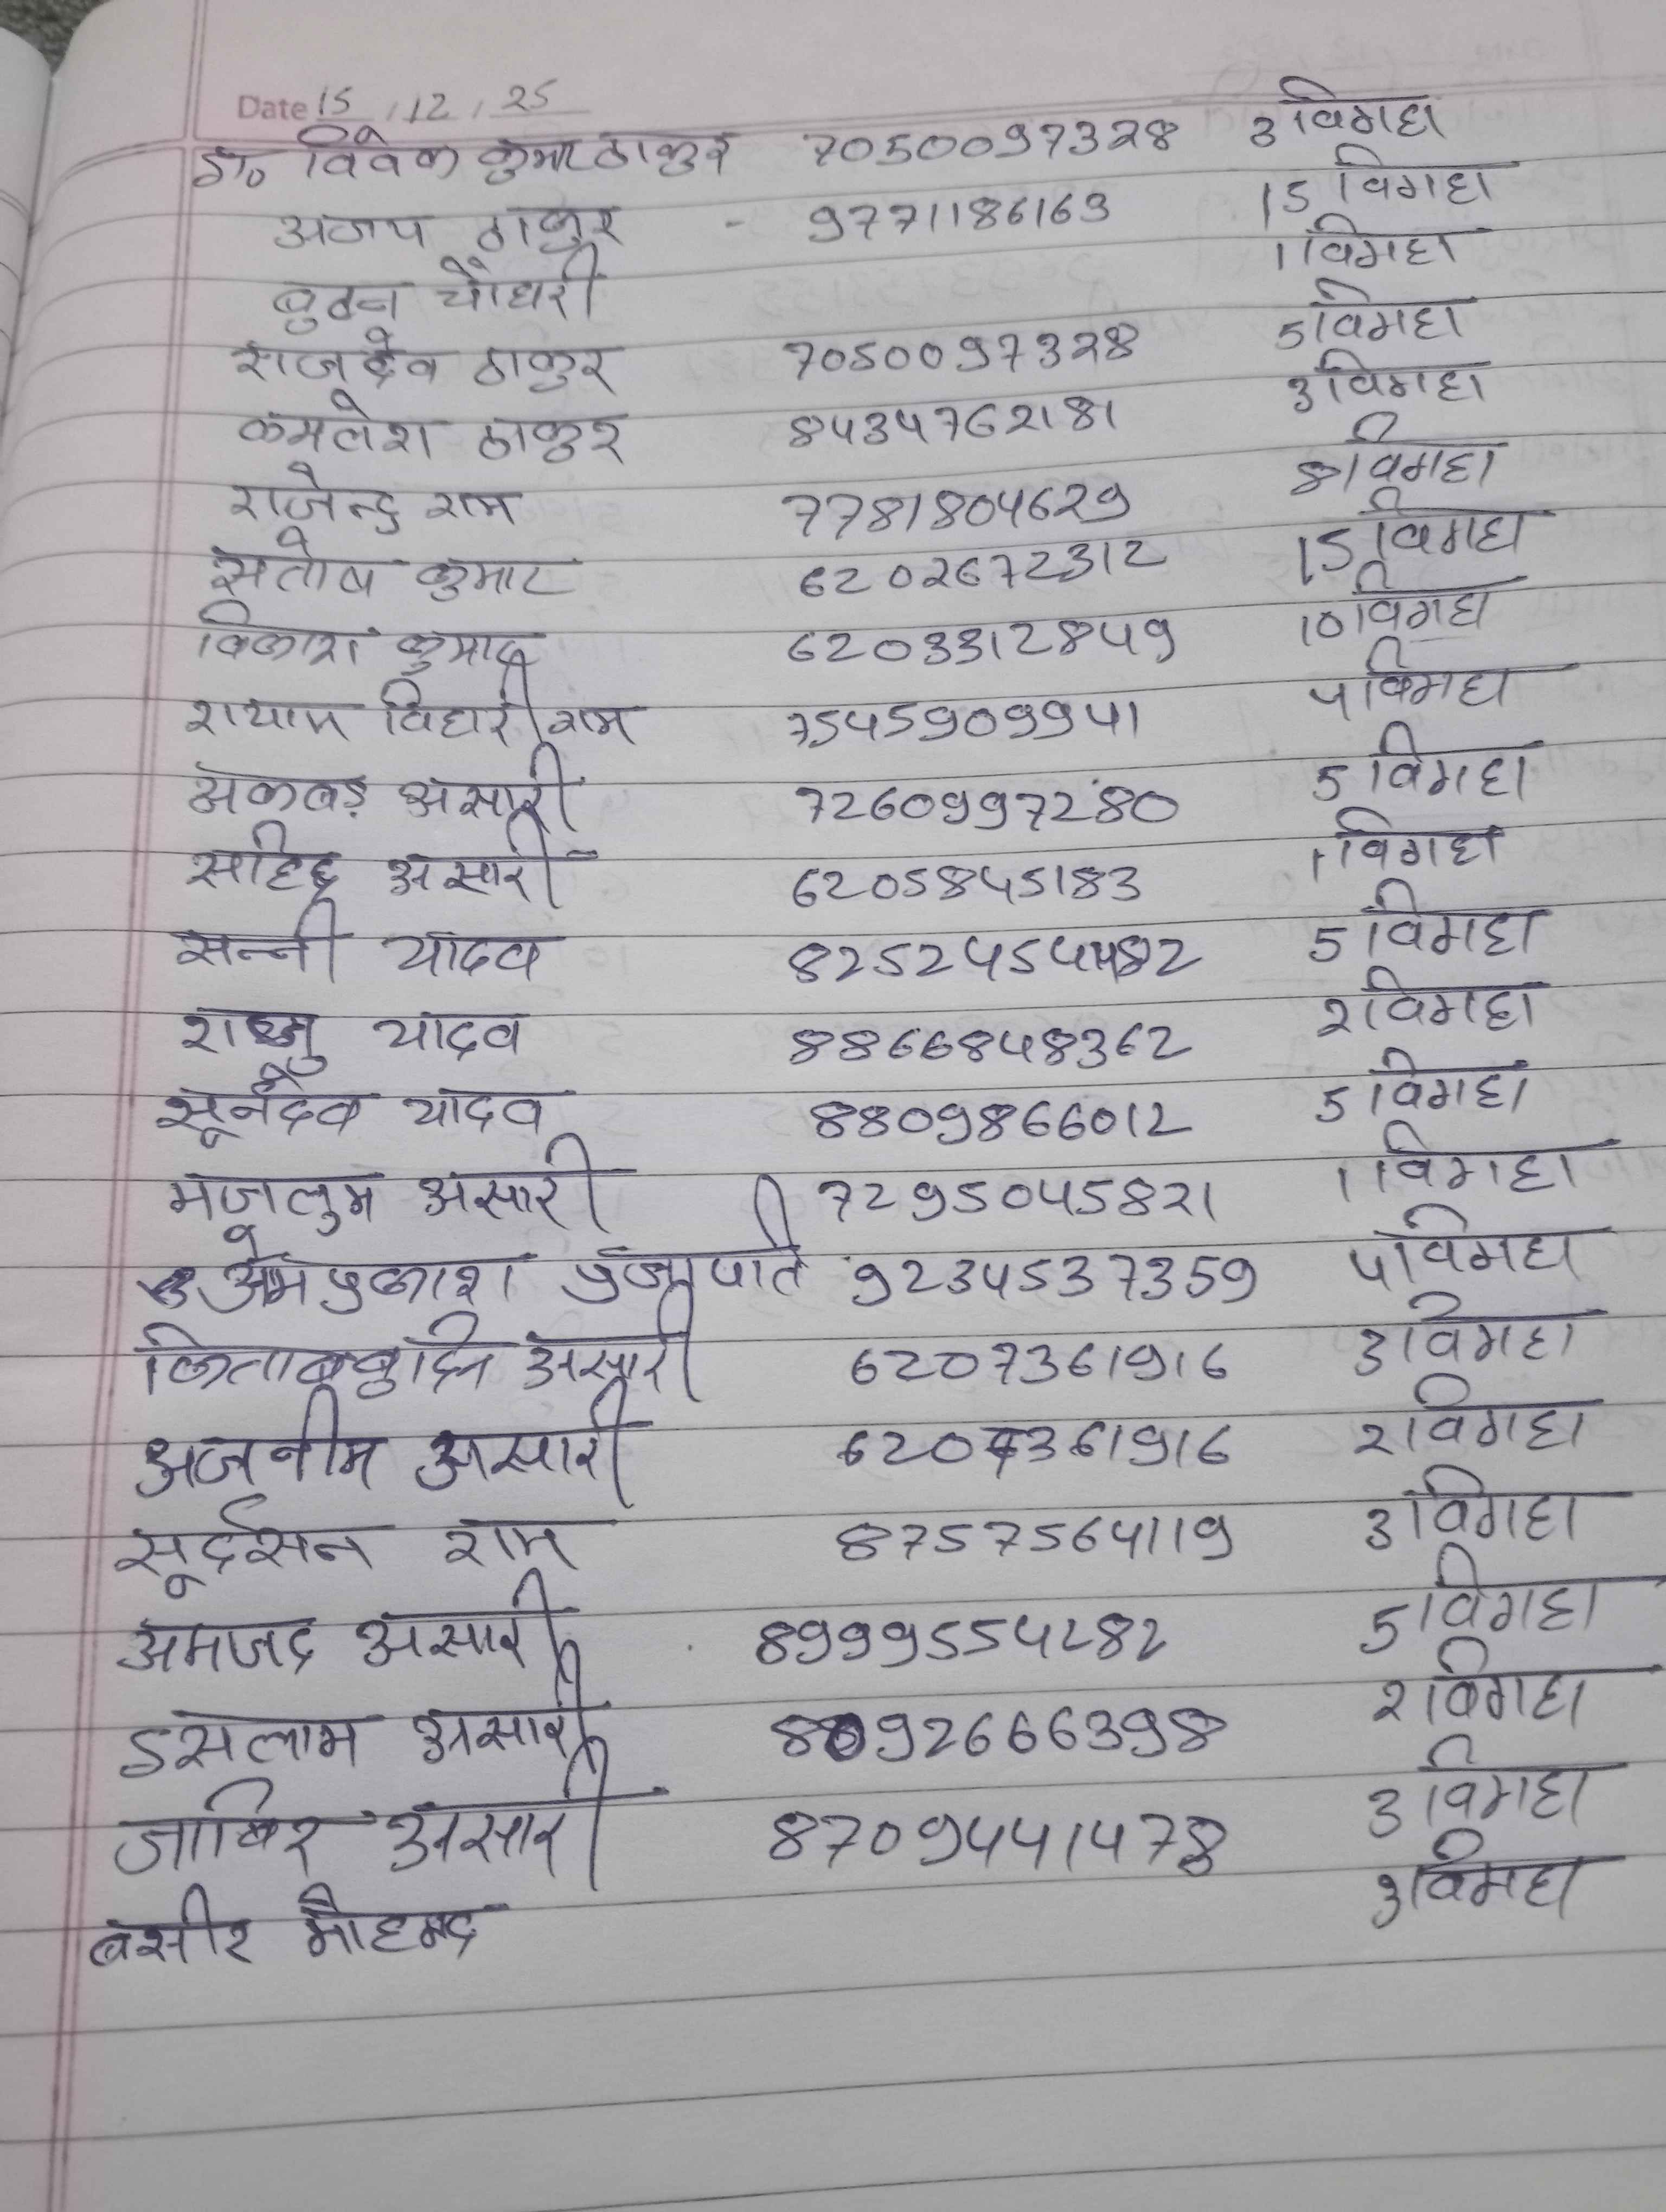 Date 15 / 12 / 25
डा० विवेक कुमार ठाकुर 7050097328 3 विगहा
अजय ठाकुर - 9771186163 15 विगहा
बुटन चौधरी 1 विगहा
राजदेव ठाकुर 7050097328 5 विगहा
कमलेश ठाकुर 8434762181 3 विगहा
राजेन्द्र राम 7781804629 8 विगहा
संतोष कुमार 6202672312 15 विगहा
विकाश कुमार 6203312849 10 विगहा
शयाम विहारी राम 7545909941 4 विगहा
अकबड़ अंसारी 7260997280 5 विगहा
सहिद्द अंसारी 6205845183 1 विगहा
सन्नी यादव 5 विगहा
यादव 8866848362 2 विगहा
यादव 8809866012 5 विगहा
मजलुम अंसारी 7295045821 1 विगहा
ओमप्रकाश प्रजापति 9234537359 4 विगहा
अंसारी 6207361916 3 विगहा
अजनीम अंसारी 6207361916 2 विगहा
सूर्दसन राम 8757564119 3 विगहा
अमजद अंसारी 8999554282 5 विगहा
इसलाम अंसारी 8092666398 2 विगहा
जाबिर अंसारी 8709441478 3 विगहा
बसीर मौहमद 3 विगहा